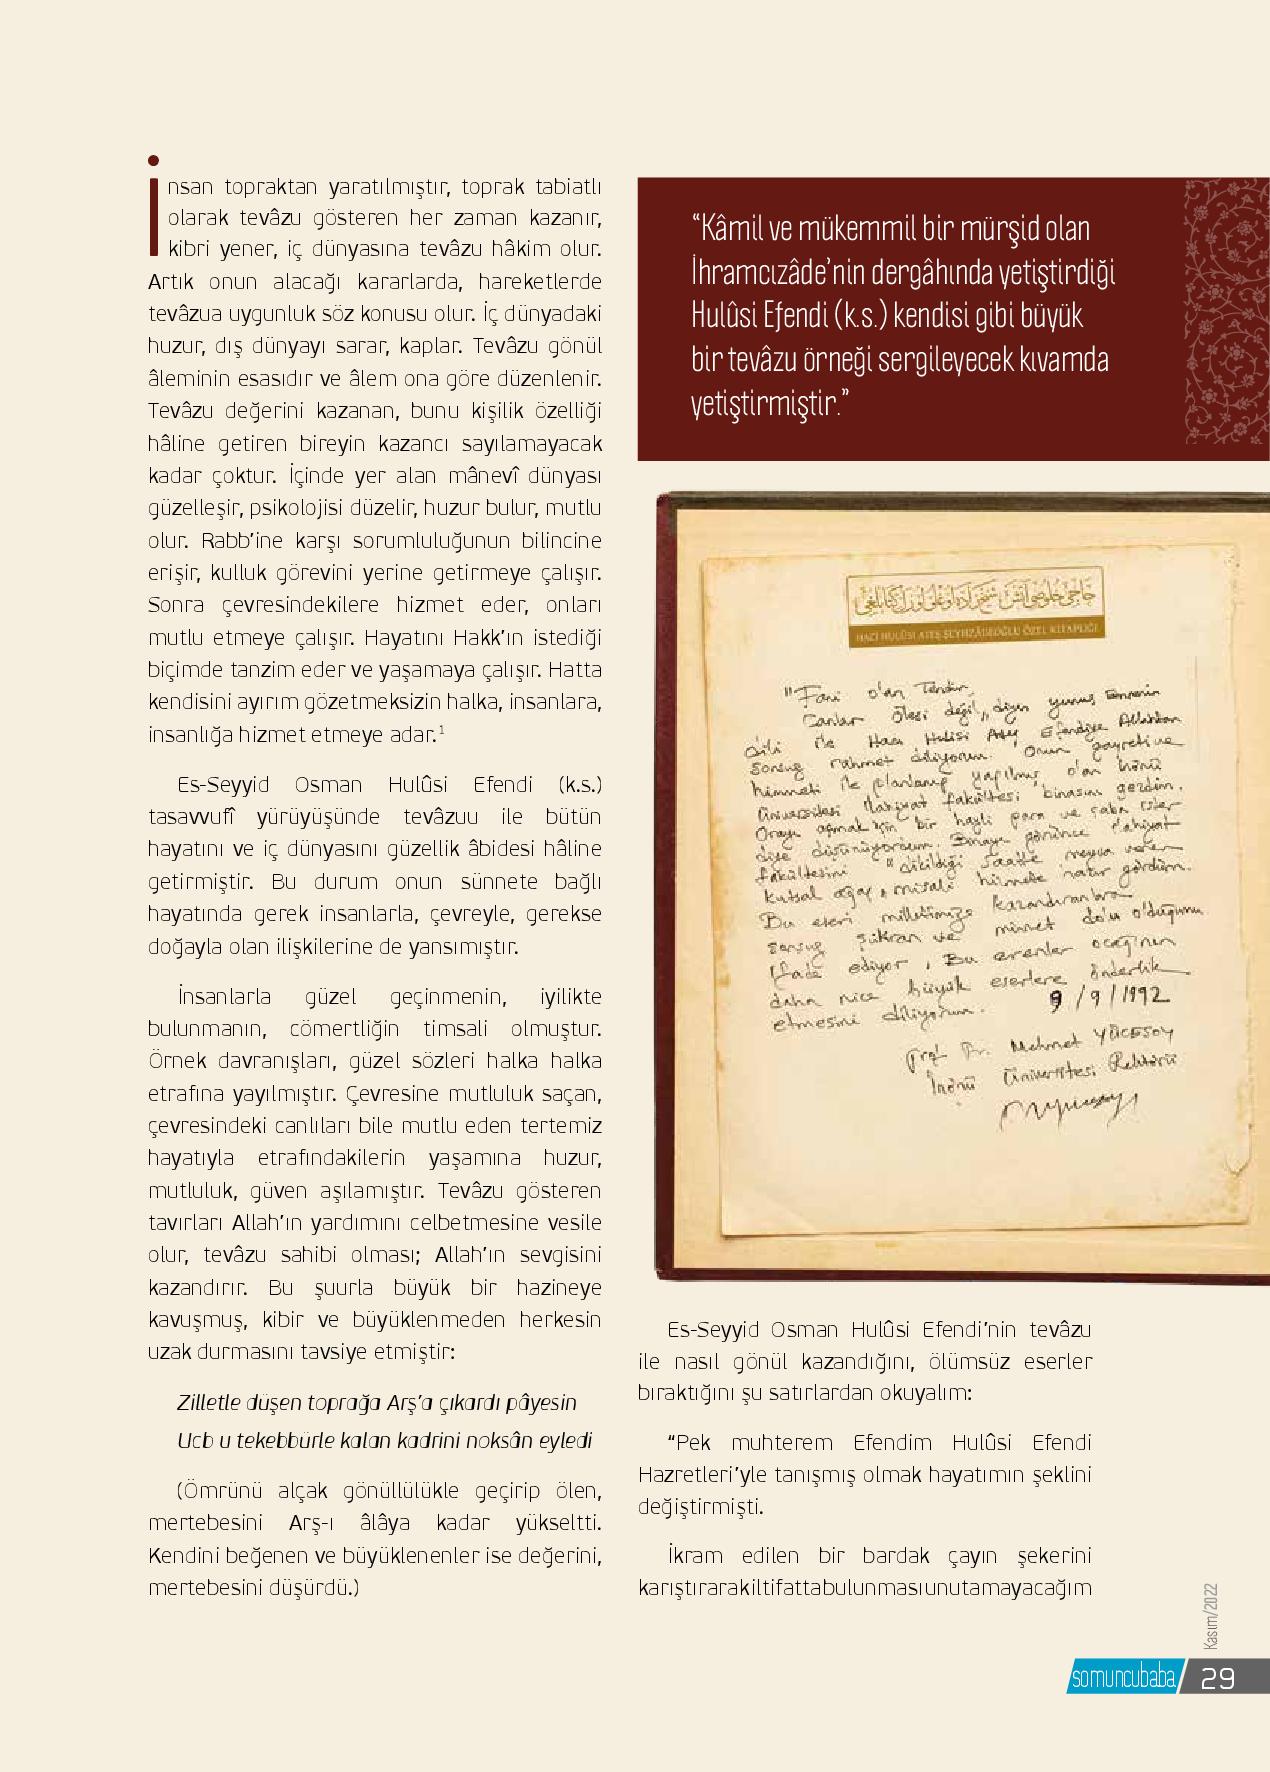 İnsan topraktan yaratılmıştır, toprak tabiatlı
olarak tevâzu gösteren her zaman kazanır,
kibri yener, iç dünyasına tevâzu hâkim olur.
Artık onun alacağı kararlarda, hareketlerde
tevâzua uygunluk söz konusu olur. İç dünyadaki
huzur, dış dünyayı sarar, kaplar. Tevâzu gönül
âleminin esasıdır ve âlem ona göre düzenlenir.
Tevâzu değerini kazanan, bunu kişilik özelliği
hâline getiren bireyin kazancı sayılamayacak
kadar çoktur. İçinde yer alan mânevî dünyası
güzelleşir, psikolojisi düzelir, huzur bulur, mutlu
olur. Rabb’ine karşı sorumluluğunun bilincine
erişir, kulluk görevini yerine getirmeye çalışır.
Sonra çevresindekilere hizmet eder, onları
mutlu etmeye çalışır. Hayatını Hakk’ın istediği
biçimde tanzim eder ve yaşamaya çalışır. Hatta
kendisini ayırım gözetmeksizin halka, insanlara,
insanlığa hizmet etmeye adar.1
Es-Seyyid Osman Hulûsi Efendi (k.s.)
tasavvufî yürüyüşünde tevâzuu ile bütün
hayatını ve iç dünyasını güzellik âbidesi hâline
getirmiştir. Bu durum onun sünnete bağlı
hayatında gerek insanlarla, çevreyle, gerekse
doğayla olan ilişkilerine de yansımıştır.
İnsanlarla güzel geçinmenin, iyilikte
bulunmanın, cömertliğin timsali olmuştur.
Örnek davranışları, güzel sözleri halka halka
etrafına yayılmıştır. Çevresine mutluluk saçan,
çevresindeki canlıları bile mutlu eden tertemiz
hayatıyla etrafındakilerin yaşamına huzur,
mutluluk, güven aşılamıştır. Tevâzu gösteren
tavırları Allah’ın yardımını celbetmesine vesile
olur, tevâzu sahibi olması; Allah’ın sevgisini
kazandırır. Bu şuurla büyük bir hazineye
kavuşmuş, kibir ve büyüklenmeden herkesin
uzak durmasını tavsiye etmiştir:
Zilletle düşen toprağa Arş’a çıkardı pâyesin
Ucb u tekebbürle kalan kadrini noksân eyledi
(Ömrünü alçak gönüllülükle geçirip ölen,
mertebesini Arş-ı âlâya kadar yükseltti.
Kendini beğenen ve büyüklenenler ise değerini,
mertebesini düşürdü.)
“Kâmil ve mükemmil bir mürşid olan
İhramcızâde’nin dergâhında yetiştirdiği
Hulûsi Efendi (k.s.) kendisi gibi büyük
bir tevâzu örneği sergileyecek kıvamda
yetiştirmiştir.”
HACI HULÛSİ ATEŞ ŞEYHZÂDEOĞLU ÖZEL KİTAPLIĞI
"Fani olan Tendir,
Canlar ölesi değil" diyen yunus Emrenin
dili ile Hacı Hulisi Ateş Efendiye Allahtan
sonsuz rahmet diliyorum. Onun gayreti ve
himmeti ile planlanıp yapılmış olan İnönü
Üniversitesi İlahiyat fakültesi binasını gezdim.
Orayı açmak için bir hayli para ve çaba ister
diye düşünüyordum. Binayı görünce ilahiyat
fakültesini "dikildiği saatte meyva veren
kutsal ağaç" misali hizmete hazır gördüm.
Bu eseri milletimize kazandıranlara
sonsuz şükran ve minnet dolu olduğumu
ifade ediyor, Bu erenler ocağının
daha nice büyük eserlere önderlik
etmesini diliyorum. 9/9/1992
Prof Dr. Mehmet YÜCESOY
İnönü Üniversitesi Rektörü
Es-Seyyid Osman Hulûsi Efendi’nin tevâzu
ile nasıl gönül kazandığını, ölümsüz eserler
bıraktığını şu satırlardan okuyalım:
“Pek muhterem Efendim Hulûsi Efendi
Hazretleri’yle tanışmış olmak hayatımın şeklini
değiştirmişti.
İkram edilen bir bardak çayın şekerini
karıştırarak iltifatta bulunması unutamayacağım
Kasım/2022
somuncubaba 29